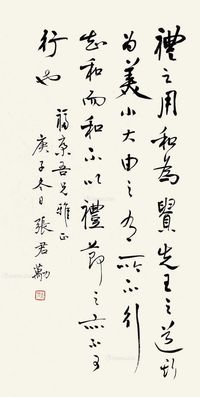 禮之用和為貴先王之道斯
為美小大由之有所不行
知和而和不以禮節之亦不可
行也
福吾兄雅正
庚子冬日張君勱